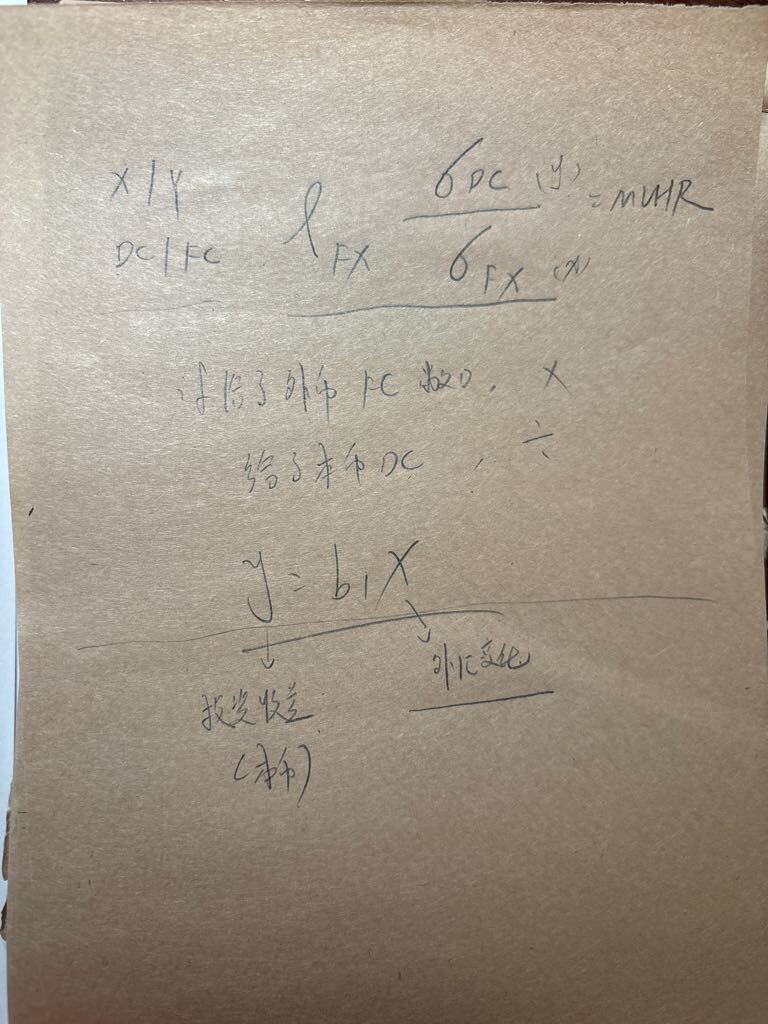 X/Y
DC/FC
ρ FX σDC (y) / σFX (x) = MVHR
给了外币 FC 敞口, ×
给了本币 DC , ÷
y = b1X
投资收益
(本币)
外汇变化